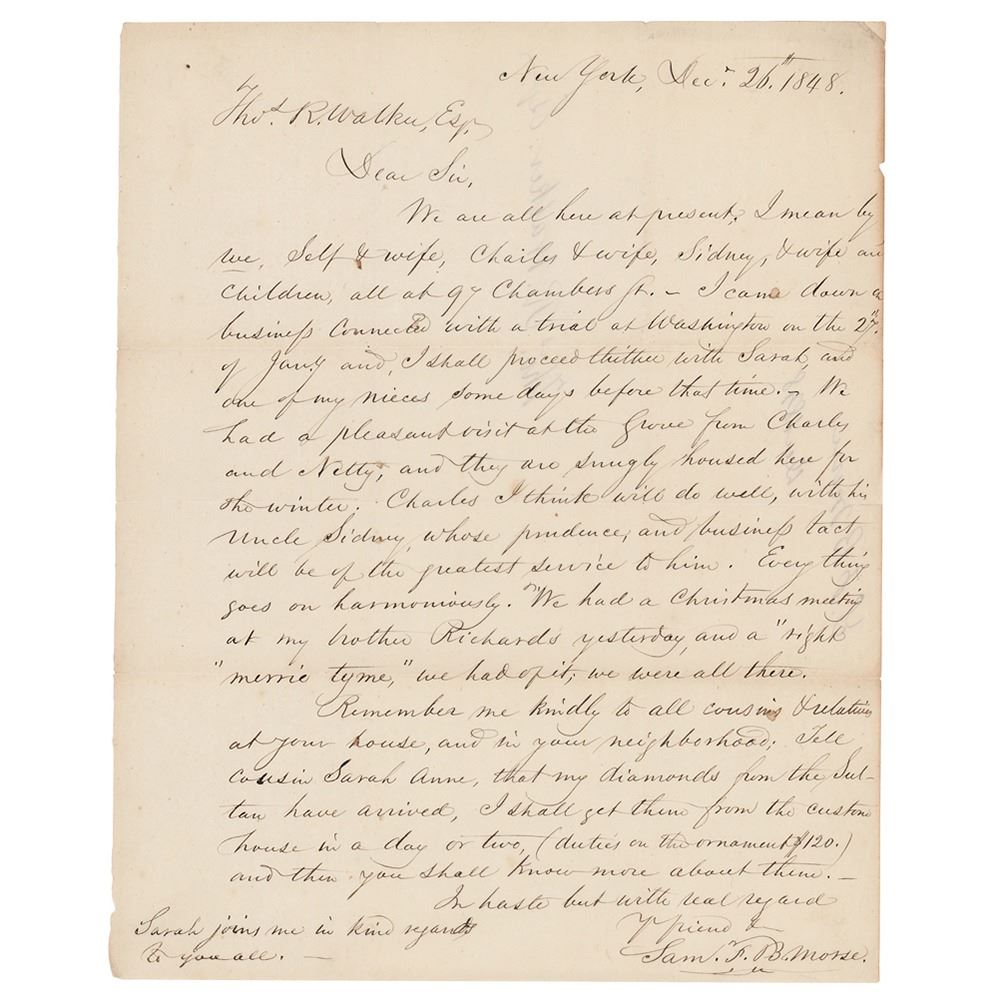 New York, Decr. 26th. 1848.
Thos. R. Walker, Esq.
Dear Sir,
We are all here at present; I mean by
we, Self & wife, Charles & wife, Sidney, & wife and
children, all at 97 Chambers St. — I came down on
business connected with a trial at Washington on the 27th.
of Jany. and, I shall proceed thither with Sarah, and
one of my nieces some days before that time. — We
had a pleasant visit at the Grove from Charles
and Netty, and they are snugly housed here for
the winter. Charles I think will do well, with his
Uncle Sidney, whose prudence, and business tact
will be of the greatest service to him. Every thing
goes on harmoniously. We had a Christmas meeting
at my brother Richards yesterday, and a "right
"merrie tyme," we had of it; we were all there.
Remember me kindly to all cousins & relatives
at your house, and in your neighborhood; Tell
cousin Sarah Anne, that my diamonds from the Sul-
tan have arrived, I shall get them from the custom
house in a day or two, (duties on the ornament $120.)
and then you shall know more about them. —
In haste but with real regard
Yr friend &
Saml. F. B. Morse.
Sarah joins me in kind regards
to you all. —